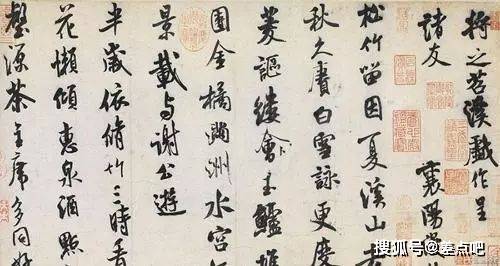 将之苕溪戲作呈
諸友
襄陽漫仕
松竹留因夏溪山去
秋久賡白雪詠更度
菱謳縷會玉鱸堆
團金橘滿洲水宮無
景載与謝公遊
半歲依脩竹三時看
花懶傾惠泉酒點
壑源茶主席多同好
搜狐号@差点吧